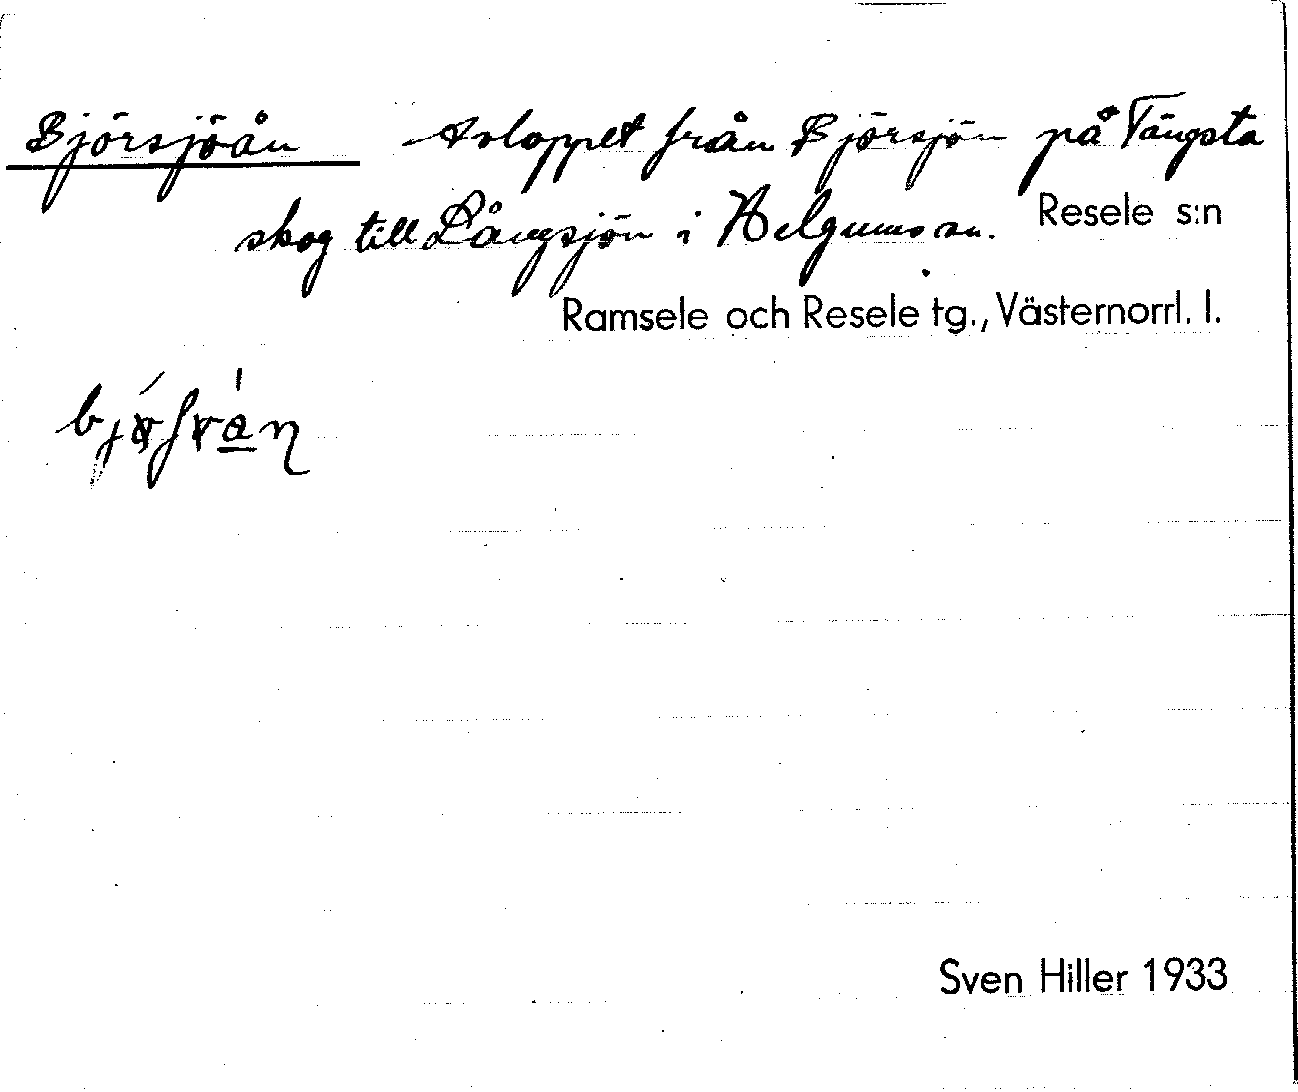 Björsjöån Avloppet från Björsjön på Tängsta
skog till Långsjön i Helgums sn. Resele s:n
Ramsele och Resele tg., Västernorrl. l.
Sven Hiller 1933